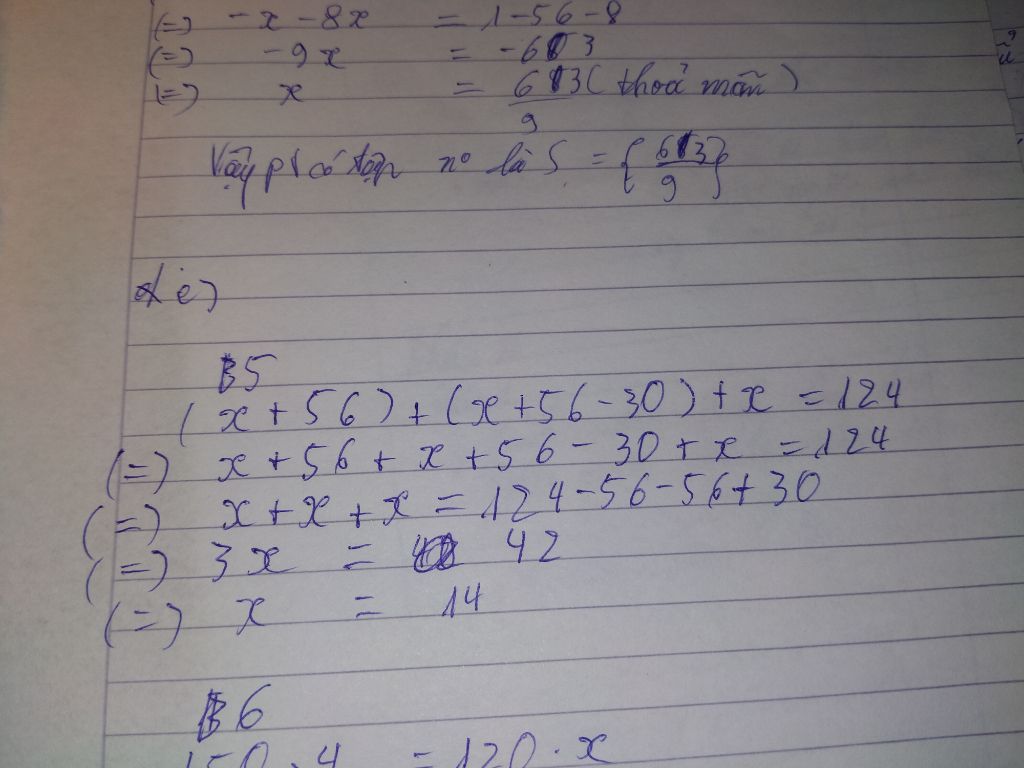 (=) -x - 8x = 1 - 56 - 8
(=) -9x = -63
(=) x = 63/9 (thoả mãn)
Vậy pt có tập no là S = {63/9}
e)
B5
(x + 56) + (x + 56 - 30) + x = 124
(=) x + 56 + x + 56 - 30 + x = 124
(=) x + x + x = 124 - 56 - 56 + 30
(=) 3x = 42
(=) x = 14
B6
150 . 4 = 120 . x